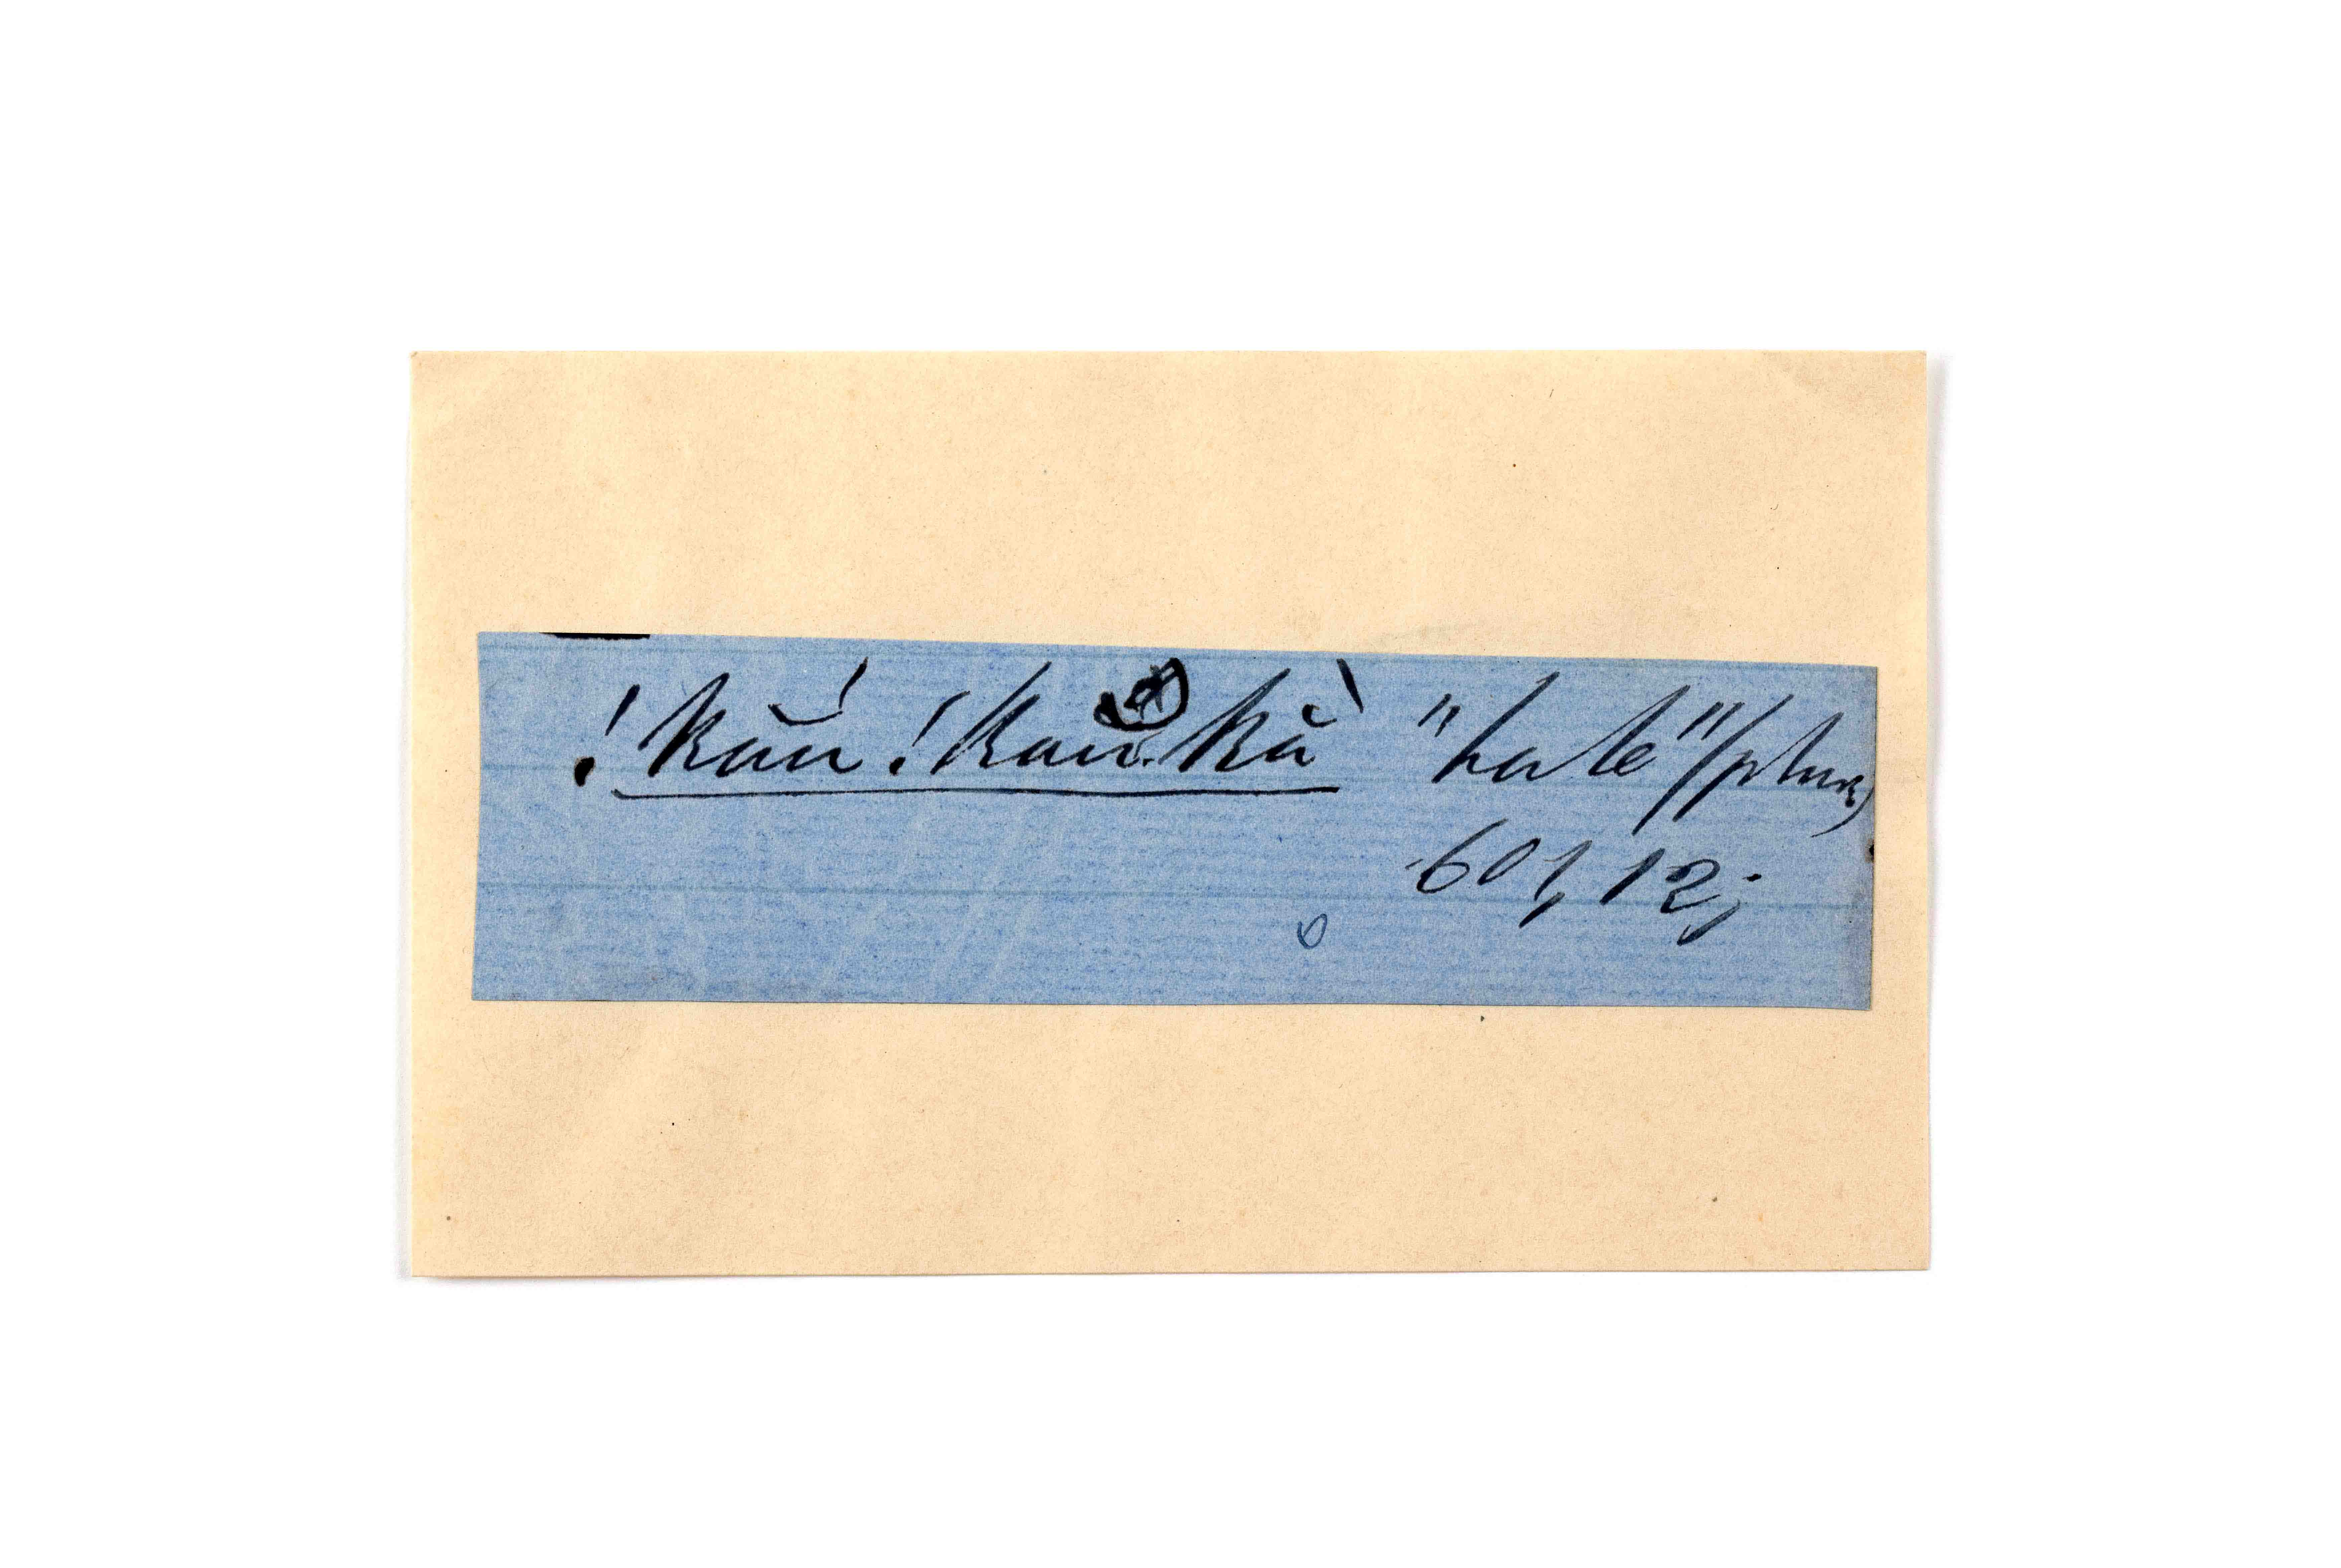 !kăú !kaukă "hate" (plur.)
601, 12;